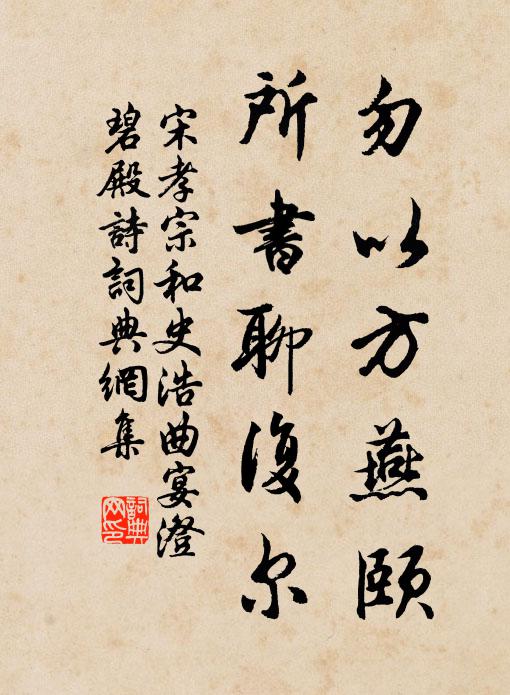 勿以方燕頤
所書聊復尔
宋孝宗和史浩曲宴澄
碧殿詩詞典網集
詞典網印